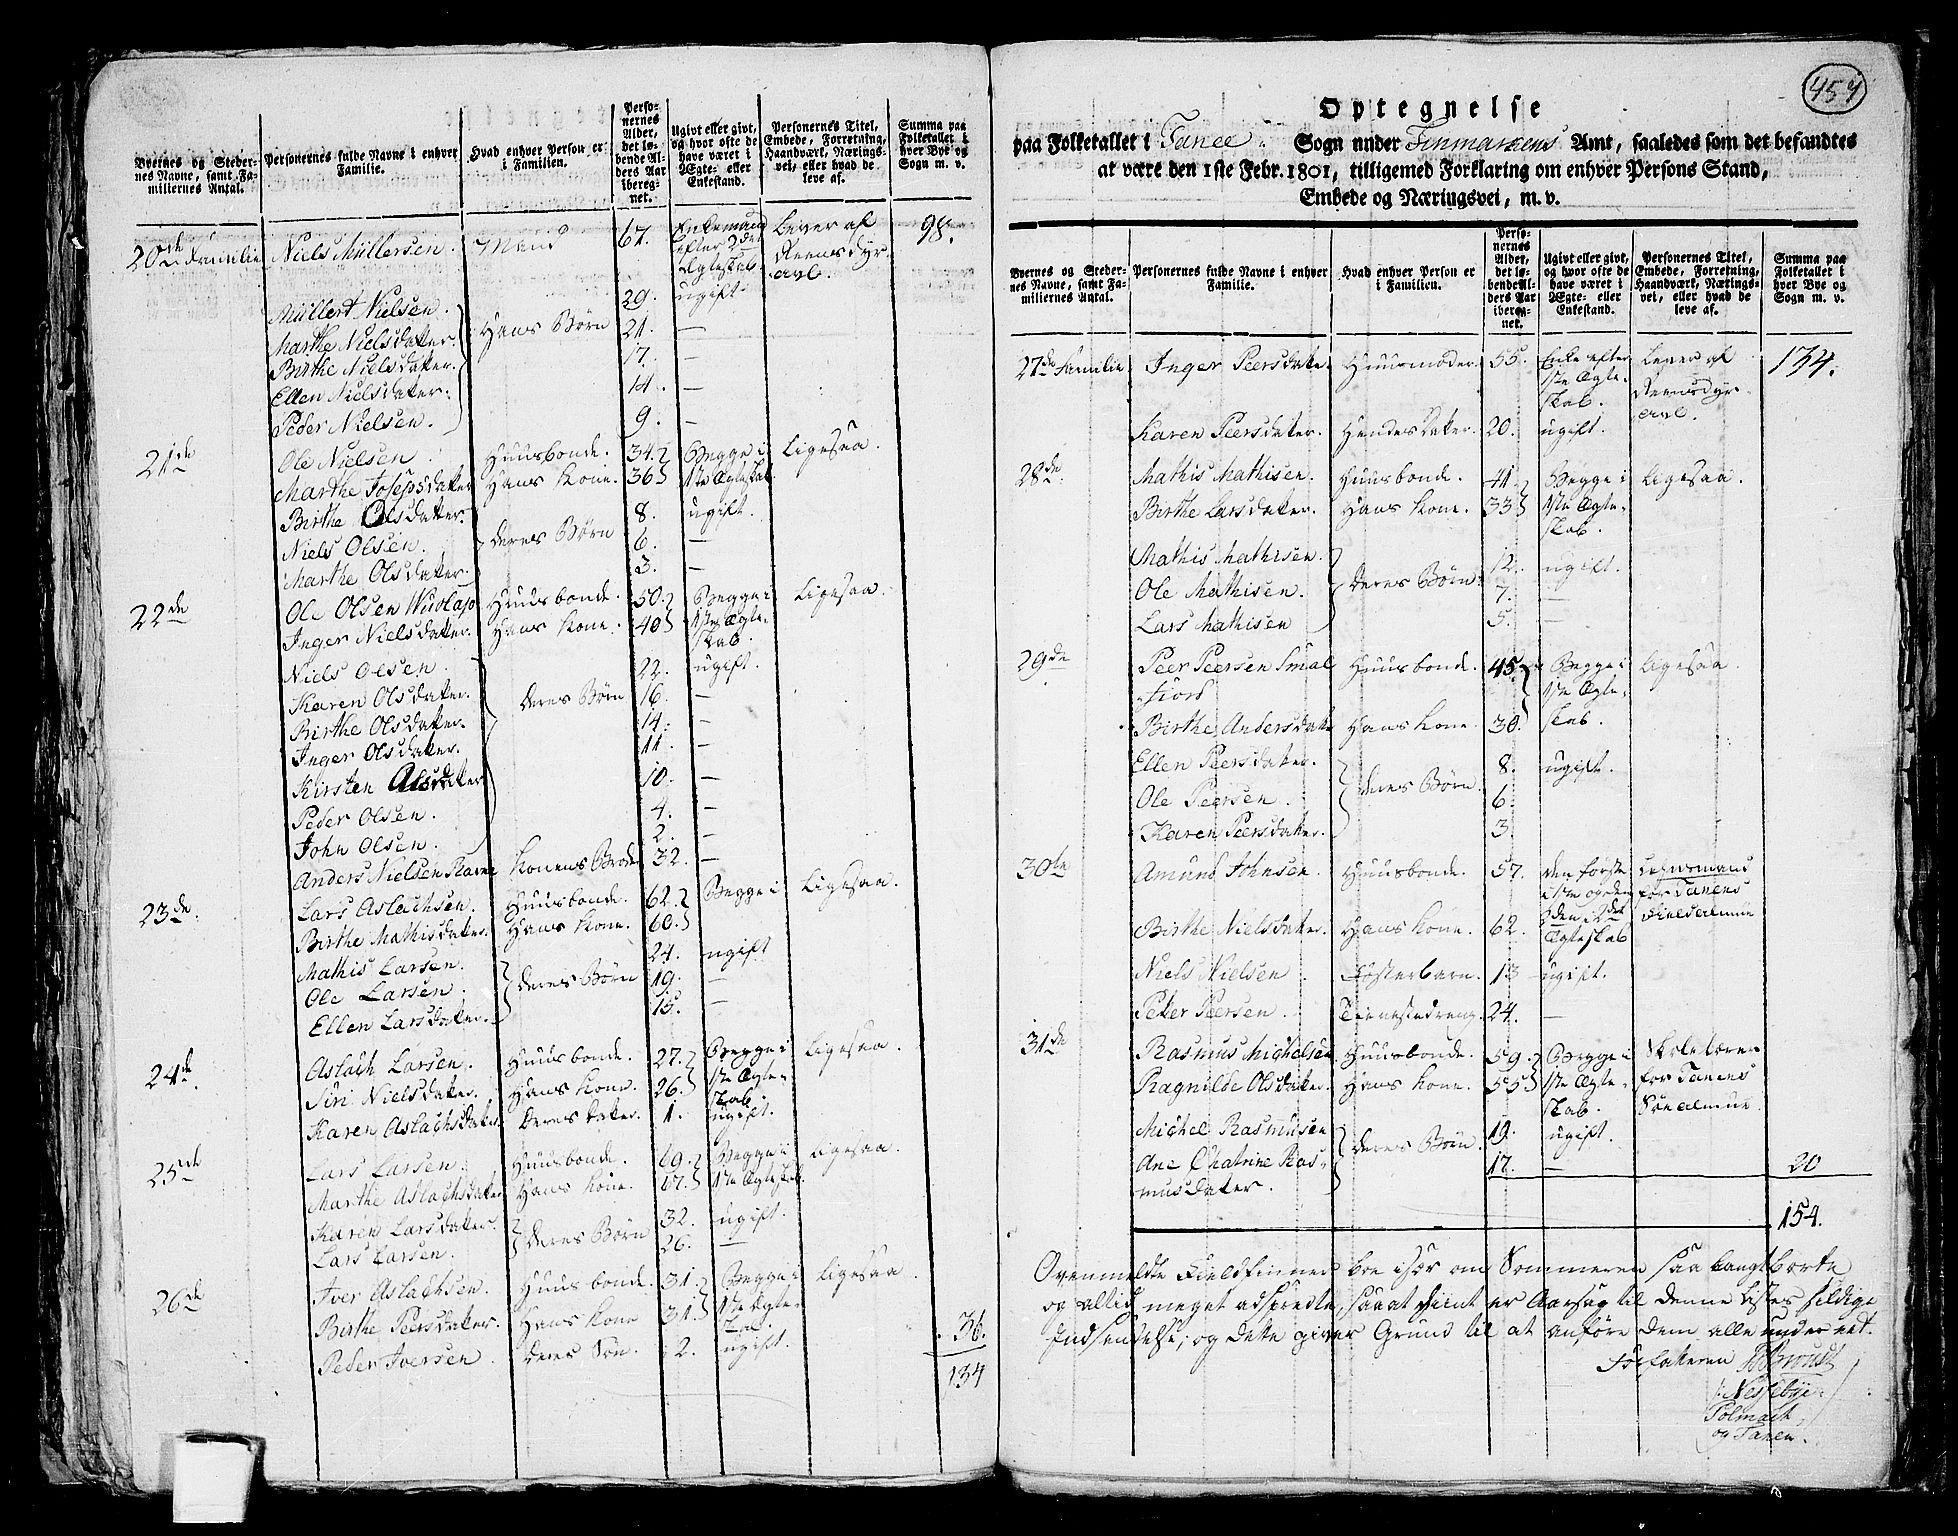 Byernes og Steder-
nes Navne, samt Fa-
miliernes Antal.
Personernes fulde Navne i enhver
Familie.
Hvad enhver Person er
i Familien.
Perso-
nernes
Alder,
det lø-
bende Al-
ders Aar
ibereg-
net.
Ugivt eller givt,
og hvor ofte de
have været i
Ægte- eller
Enkestand.
Personernes Titel,
Embede, Forretning,
Haandværk, Nærings-
vei, eller hvad de
leve af.
Summa paa
Folketallet i
hver Bye og
Sogn m. v.
20de Familie Niels Müllersen. Mand 67. Enkemand efter 2det Ægteskab Lever af Reensdyr avl. 98.
Müllert Nielsen. 29. ugift.
Marthe Nielsdater. Hans Børn 21. —
Birthe Nielsdater. 17. —
Ellen Nielsdater. 14. —
Peder Nielsen. 9. —
21de Ole Nielsen Huusbonde. 34. Begge i Ligesaa.
Marthe Josepsdater Hans Kone. 36 1ste Ægteskab.
Birthe Olsdater. 8. ugift.
Niels Olsen. deres Børn 6. —
Marthe Olsdater. 3. —
22de Ole Olsen Huusbonde. 50. Begge i Ligesaa.
Inger Nielsdater. Hans Kone. 40 1ste Ægte-
skab.
Niels Olsen. 22. ugift.
Karen Olsdater. deres Børn 16. —
Birthe Olsdater. 14. —
Inger Olsdater. 11. —
Kirsten Olsdater 10. —
Peder Olsen. 4. —
John Olsen. 2. —
Anders Nielsen Konens Broder 32. —
23de. Lars Aslachsen. Huusbonde. 62. Begge i Ligesaa.
Birthe Mathisdater. Hans Kone. 60.
Mathis Larsen. 24. ugift
Ole Larsen. deres Børn 19. —
Ellen Larsdater. 15. —
24de. Aslach Larsen. Huusbonde. 27. Begge i Ligesaa.
Siri Nielsdater. Hans Kone. 26. 1ste Ægte-
skab.
Karen Aslachsdater Deres Dater. 1. ugift.
25de Lars Larsen. Huusbonde. 69. Begge i Ligesaa.
Marthe Aslachsdater Hans Kone. 67. 1ste Ægteskab.
Karen Larsdater. deres Børn 32. ugift.
Lars Larsen. 26. —
26de Iver Aslachsen. Huusbonde. 31. Begge i Ligesaa.
Birthe Peersdater. Hans Kone 31. 1ste Ægte-
skab.
Peder Iversen. deres Søn. 2. ugift. 36.
134
454
Optegnelse
paa Folketallet i Tanee Sogn under Finmarkens Amt, saaledes som det befandtes
at være den 1ste Febr. 1801, tilligemed Forklaring om enhver Persons Stand,
Embede og Næringsvei, m. v.
Byernes og Steder-
nes Navne, samt Fa-
miliernes Antal.
Personernes fulde Navne i enhver
Familie.
Hvad enhver Person er
i Familien.
Perso-
nernes
Alder,
det lø-
bende Al-
ders Aar
ibereg-
net.
Ugivt eller givt,
og hvor ofte de
have været i
Ægte- eller
Enkestand.
Personernes Titel,
Embede, Forretning,
Haandværk, Nærings-
vei, eller hvad de
leve af.
Summa paa
Folketallet i
hver Bye og
Sogn m. v.
27de Familie Inger Peersdater Huusmoder. 55. Enke efter 1ste Ægte-skab. Lever af Reensdyr avl. 134.
Karen Peersdater. Hendes Dater. 20. ugift.
28de. Mathis Mathisen. Huusbonde. 41. Begge i Ligesaa.
Birthe Larsdater. Hans Kone. 33 1ste Ægte-
skab.
Mathis Mathisen. 12. ugift.
Ole Mathisen. deres Børn 7. —
Lars Mathisen 5. —
29de Peer Peersen Smal- Huusbonde. 45. Begge i Ligesaa.
fiord 1ste Ægte-
Birthe Andersdater Hans Kone. 30. skab.
Ellen Peersdater. 8. ugift.
Ole Peersen. deres Børn. 6.
Karen Peersdater. 3.
30te Amund Johnsen. Huusbonde. 57. den første i 1ste og den Lehnsmand for Tanens
Birthe Nielsdater. Hans Kone. 62. anden i 2det Ægteskab Fieldalmue
Niels Nielsen Fosterbarn. 13 ugift.
Peder Peersen. Tienestedreng. 24. —
31de Rasmus Michelsen Huusbonde. 59. Begge i Skolelærer
Ragnilde Olsdater. Hans Kone. 55 1ste Ægte- for Tanens
skab. Søealmue.
Michel Rasmusen deres Børn. 19. ugift.
Ane Chatrine Ras- 17. — 20
musdater.
154.
Ovenmeldte Fieldfinner boe især om Sommeren saa langt borte
og altid meget adspredte, saa at Fiint er Aarsag til denne Listes sildige
Indsendelse; og dette giver Grund til at anføre dem alle under eet.
Forfatteren
Nessebye
Polmach,
og Tanen.